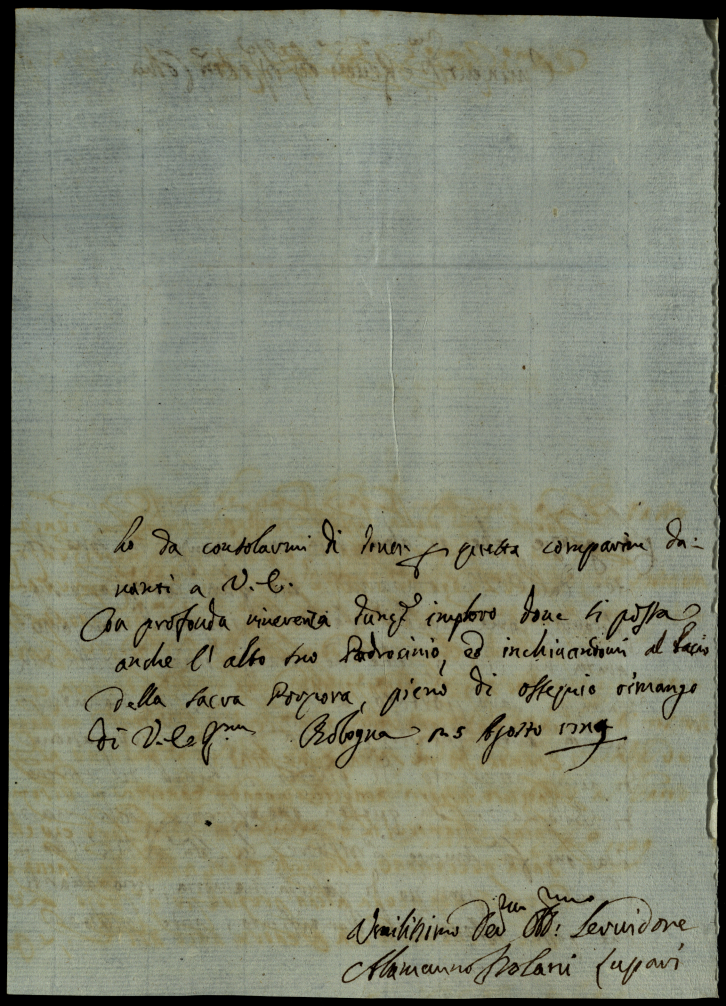 ho da consolarmi di dover questa comparire da-
vanti a V. E.
Con profonda riverenza dunq.e imploro dove si possa
anche l'alto suo Padrocinio, ed inchinandomi al bacio
della sacra Porpora, pieno di ossequio rimango
di V. E. Bologna Agosto
Umilissimo Dev.mo Obb.mo Servidore
Alamanno Isolani Lupari